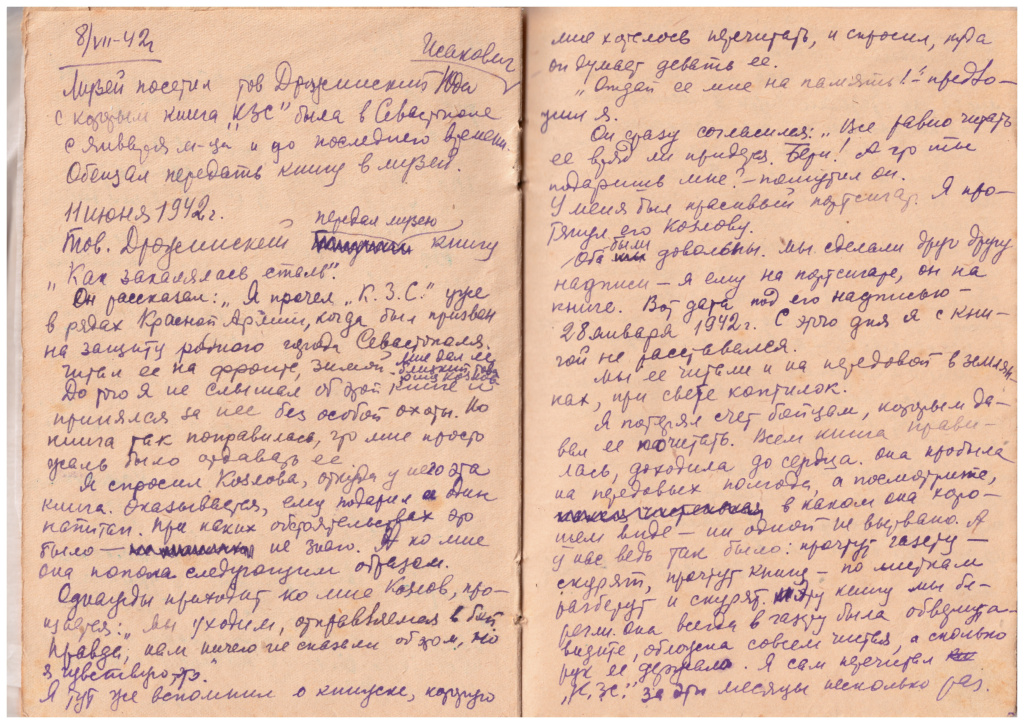 8/VII-42г
Исакович
Музей посетил тов Дружинский Юда
с которым книга "КЗС" была в Севастополе
с января м-ца и до последнего времени.
Обещал передать книгу в музей.
11 июня 1942г.
передал музею
Тов. Дружинский книгу
"Как закалялась сталь".
Он рассказал: "Я прочел "К.З.С." уже
в рядах Красной Армии, когда был призван
на защиту родного города Севастополя.
Читал ее на фронте, зимой. мне дал ее
близкий тов
арищ Козлов
До того я не слышал об этой книге и
принялся за нее без особой охоты. Но
книга так понравилась, что мне просто
жаль было отдавать ее.
Я спросил Козлова, откуда у него эта
книга. Оказывается, ему подарил один
капитан. При каких обстоятельствах это
было — не знаю. А ко мне
она попала следующим образом.
Однажды приходит ко мне Козлов, про-
щается: "мы уходим, отправляемся в бой
правда, нам ничего не сказали об этом, но
я чувствую это."
Я тут же вспомнил о книжке, которую
мне хотелось перечитать, и спросил, куда
он думает девать ее.
"Отдай ее мне на память!" - предло-
жил я.
Он сразу согласился: "Все равно читать
ее вряд ли придется. Бери! А что ты
подаришь мне? - пошутил он.
У меня был красивый портсигар. Я про-
тянул его Козлову.
Оба были довольны. Мы сделали друг другу
надписи - я ему на портсигаре, он на
книге. Вот дата под его надписью -
28 января 1942г. С этого дня я с кни-
гой не расставался.
Мы ее читали и на передовой в землян-
ках, при свете коптилок.
Я потерял счет бойцам, которым да-
вал ее почитать. Всем книга нрави-
лась, доходила до сердца. она пробыла
на передовых полгода, а посмотрите,
в каком она хоро-
шем виде - ни одной не вырвано. А
у нас ведь так было: прочтут газету —
скурят, прочтут книгу - по листкам
разберут и скурят. эту книгу мы бе-
регли. Она всегда в газету была обвернута.
видите, обложка совсем чистая, а сколько
рук ее держало. Я сам перечитал
"К.ЗС." за эти месяцы несколько раз.